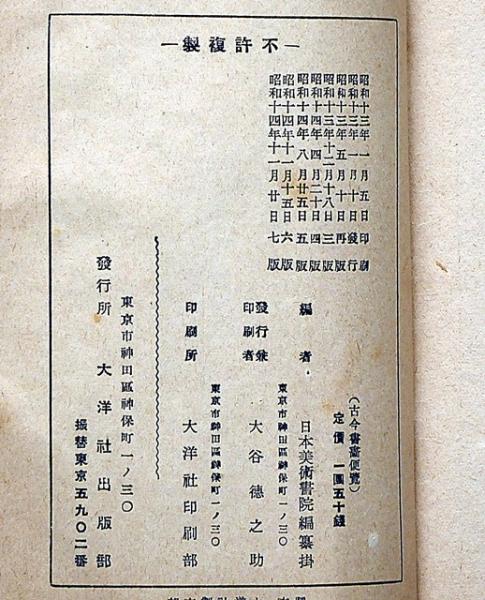 不許複製
昭和十三年一月五日印刷
昭和十三年一月十日發行
昭和十三年五月十日再版
昭和十三年十二月十八日三版
昭和十四年四月二十日四版
昭和十四年八月廿五日五版
昭和十四年十一月十五日六版
昭和十四年十一月廿日七版
(古今書畫便覽)
定價 一圓五十錢
編者 日本美術書院編纂掛
東京市神田區神保町一ノ三〇
發行兼印刷者 大谷德之助
東京市神田區神保町一ノ三〇
印刷所 大洋社印刷部
東京市神田區神保町一ノ三〇
發行所 大洋社出版部
振替東京五九〇二番